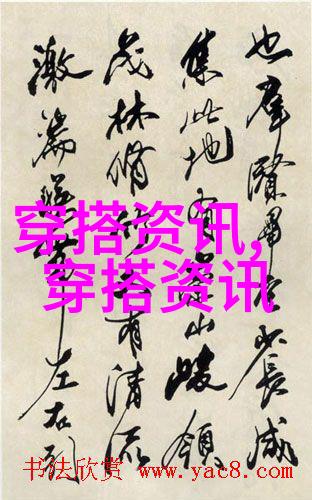 也羣賢畢至少長咸
集此地有崇山峻領
茂林脩竹又有清流
激湍暎帶左右引
穿搭资讯,
穿搭资讯
书法欣赏 www.yac8.com